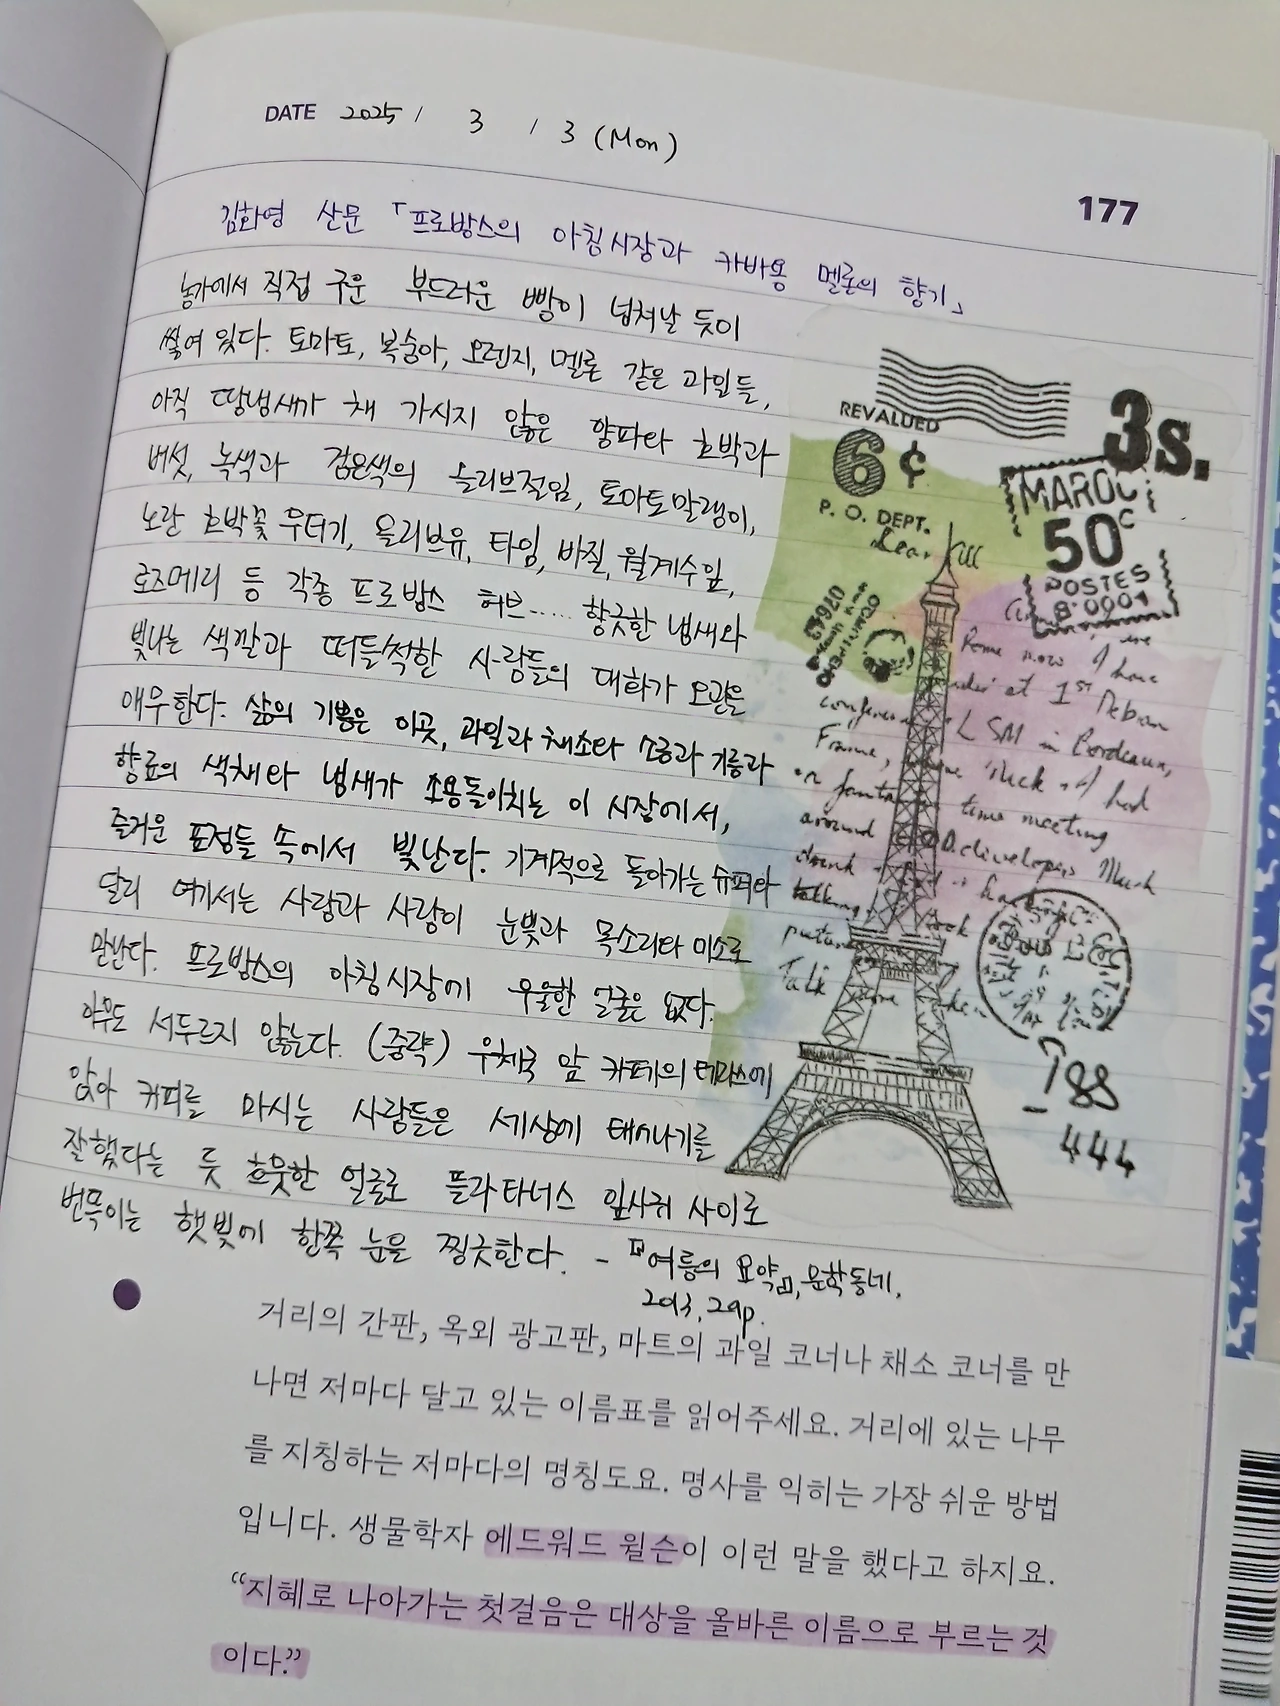 DATE 2025 / 3 / 3 (Mon)
177
김화영 산문 「프로방스의 아침시장과 카바용 멜론의 향기」
농가에서 직접 구운 부드러운 빵이 넘쳐날 듯이
쌓여 있다. 토마토, 복숭아, 오렌지, 멜론 같은 과일들,
아직 땅냄새가 채 가시지 않은 양파와 호박과
버섯, 녹색과 검은색의 올리브절임, 토마토말랭이,
노란 호박꽃 무더기, 올리브유, 타임, 바질, 월계수잎,
로즈메리 등 각종 프로방스 허브..... 향긋한 냄새와
빛나는 색깔과 떠들썩한 사람들의 대화가 오관을
애무한다. 삶의 기쁨은 이곳, 과일과 채소와 소금과 기름과
향료의 색채와 냄새가 소용돌이치는 이 시장에서,
즐거운 표정들 속에서 빛난다. 기계적으로 돌아가는 슈퍼와
달리 여기서는 사람과 사람이 눈빛과 목소리와 미소로
만난다. 프로방스의 아침시장에 우울한 얼굴은 없다.
아무도 서두르지 않는다. (중략) 우체국 앞 카페의 테라스에
앉아 커피를 마시는 사람들은 세상에 태어나기를
잘했다는 듯 흐뭇한 얼굴로 플라타너스 잎사귀 사이로
번뜩이는 햇빛에 한쪽 눈을 찡긋한다. - 『여름의 묘약』, 문학동네,
2013, 29p.
REVALUED
6 ¢
P. O. DEPT.
3s.
MAROC
50c
POSTES
Rome now I have
at 1ST Debian
LSM in Bordeaux,
France,
time meeting
around
talking
Talk
788
444
거리의 간판, 옥외 광고판, 마트의 과일 코너나 채소 코너를 만
나면 저마다 달고 있는 이름표를 읽어주세요. 거리에 있는 나무
를 지칭하는 저마다의 명칭도요. 명사를 익히는 가장 쉬운 방법
입니다. 생물학자 에드워드 윌슨이 이런 말을 했다고 하지요.
“지혜로 나아가는 첫걸음은 대상을 올바른 이름으로 부르는 것
이다.”